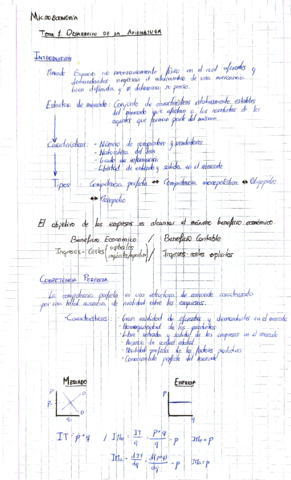 MICROECONOMÍA
Tema 1. Desarrollo de la Asignatura
INTRODUCCIÓN
Mercado: Espacio no necesariamente físico en el cual oferentes y
demandantes negocian el intercambio de una mercancía
bien definida y se determina su precio.
Estructura de mercado: Conjunto de características relativamente estables
del mercado que afectan a los resultados de los
agentes que forman parte del mismo.
Características: - Número de compradores y vendedores
- Naturaleza del bien
- Grado de información
- Libertad de entrada y salida en el mercado
Tipos: Competencia perfecta ↔ Competencia monopolística ↔ Oligopolio
↔ Monopolio
El objetivo de las empresas es alcanzar el máximo beneficio económico.
Beneficio Económico / Beneficio Contable
Ingresos - Costes (explícitos implícitos) / Ingresos - costes explícitos
COMPETENCIA PERFECTA
La competencia perfecta es una estructura de mercado caracterizada
por una total ausencia de rivalidad entre las empresas.
- Características: - Gran cantidad de oferentes y demandantes en el mercado
- Homogeneidad de los productos
- Libre entrada y salida de las empresas en el mercado
- Movilidad perfecta de los factores productivos
- Conocimiento perfecto del mercado
MERCADO
EMPRESA
P
P
q
IT = p * q / IMe = IT/q = p*q/q = p IMe = p
IMa = dIT/dq = d(p*q)/dq = p IMa = p